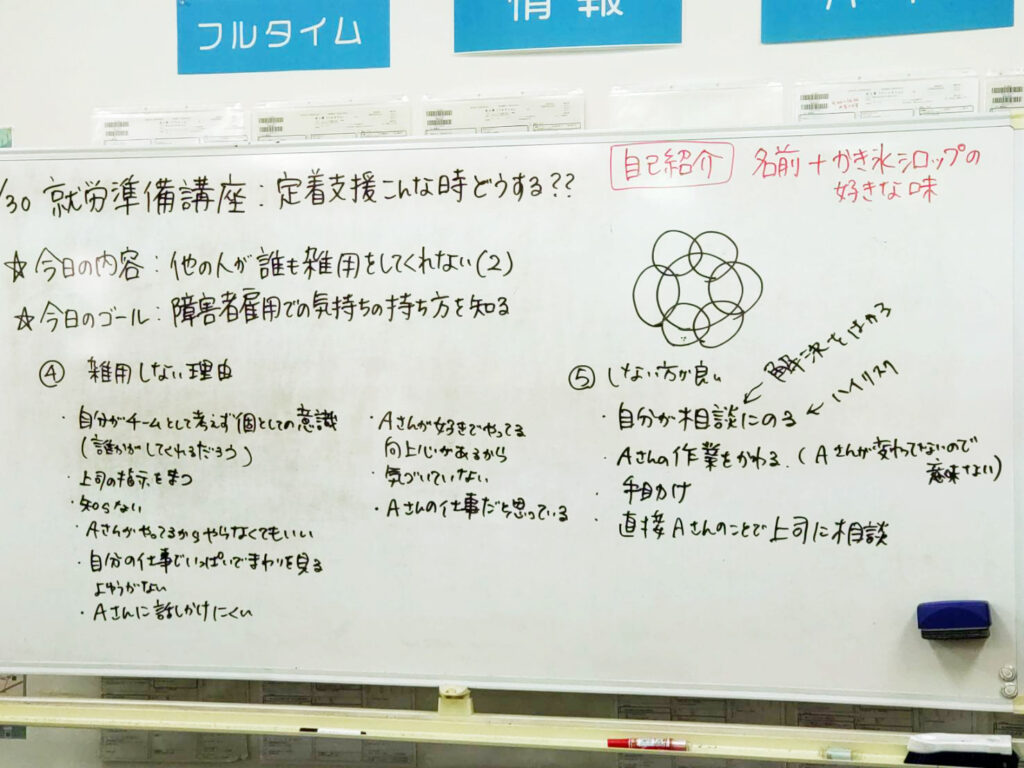 フルタイム
情報
自己紹介 名前+かき氷シロップの
好きな味
/30 就労準備講座:定着支援こんな時どうする??
☆今日の内容:他の人が誰も雑用をしてくれない(2)
☆今日のゴール:障害者雇用での気持ちの持ち方を知る
④ 雑用しない理由
・自分がチームとして考えず個としての意識
(誰かがしてくれるだろう)
・上司の指示を待つ
・知らない
・Aさんがやってるからやらなくてもいい
・自分の仕事でいっぱいでまわりを見る
ようがない
・Aさんに話しかけにくい
・Aさんが好きでやってる
向上心があるから
気づいていない
・Aさんの仕事だと思っている
⑤ しない方が良い
解決をはかる
ハイリスク
・自分が相談にのる
・Aさんの作業をかわる.(Aさんが変わってないので
意味ない)
・手助け
・直接Aさんのことで上司に相談